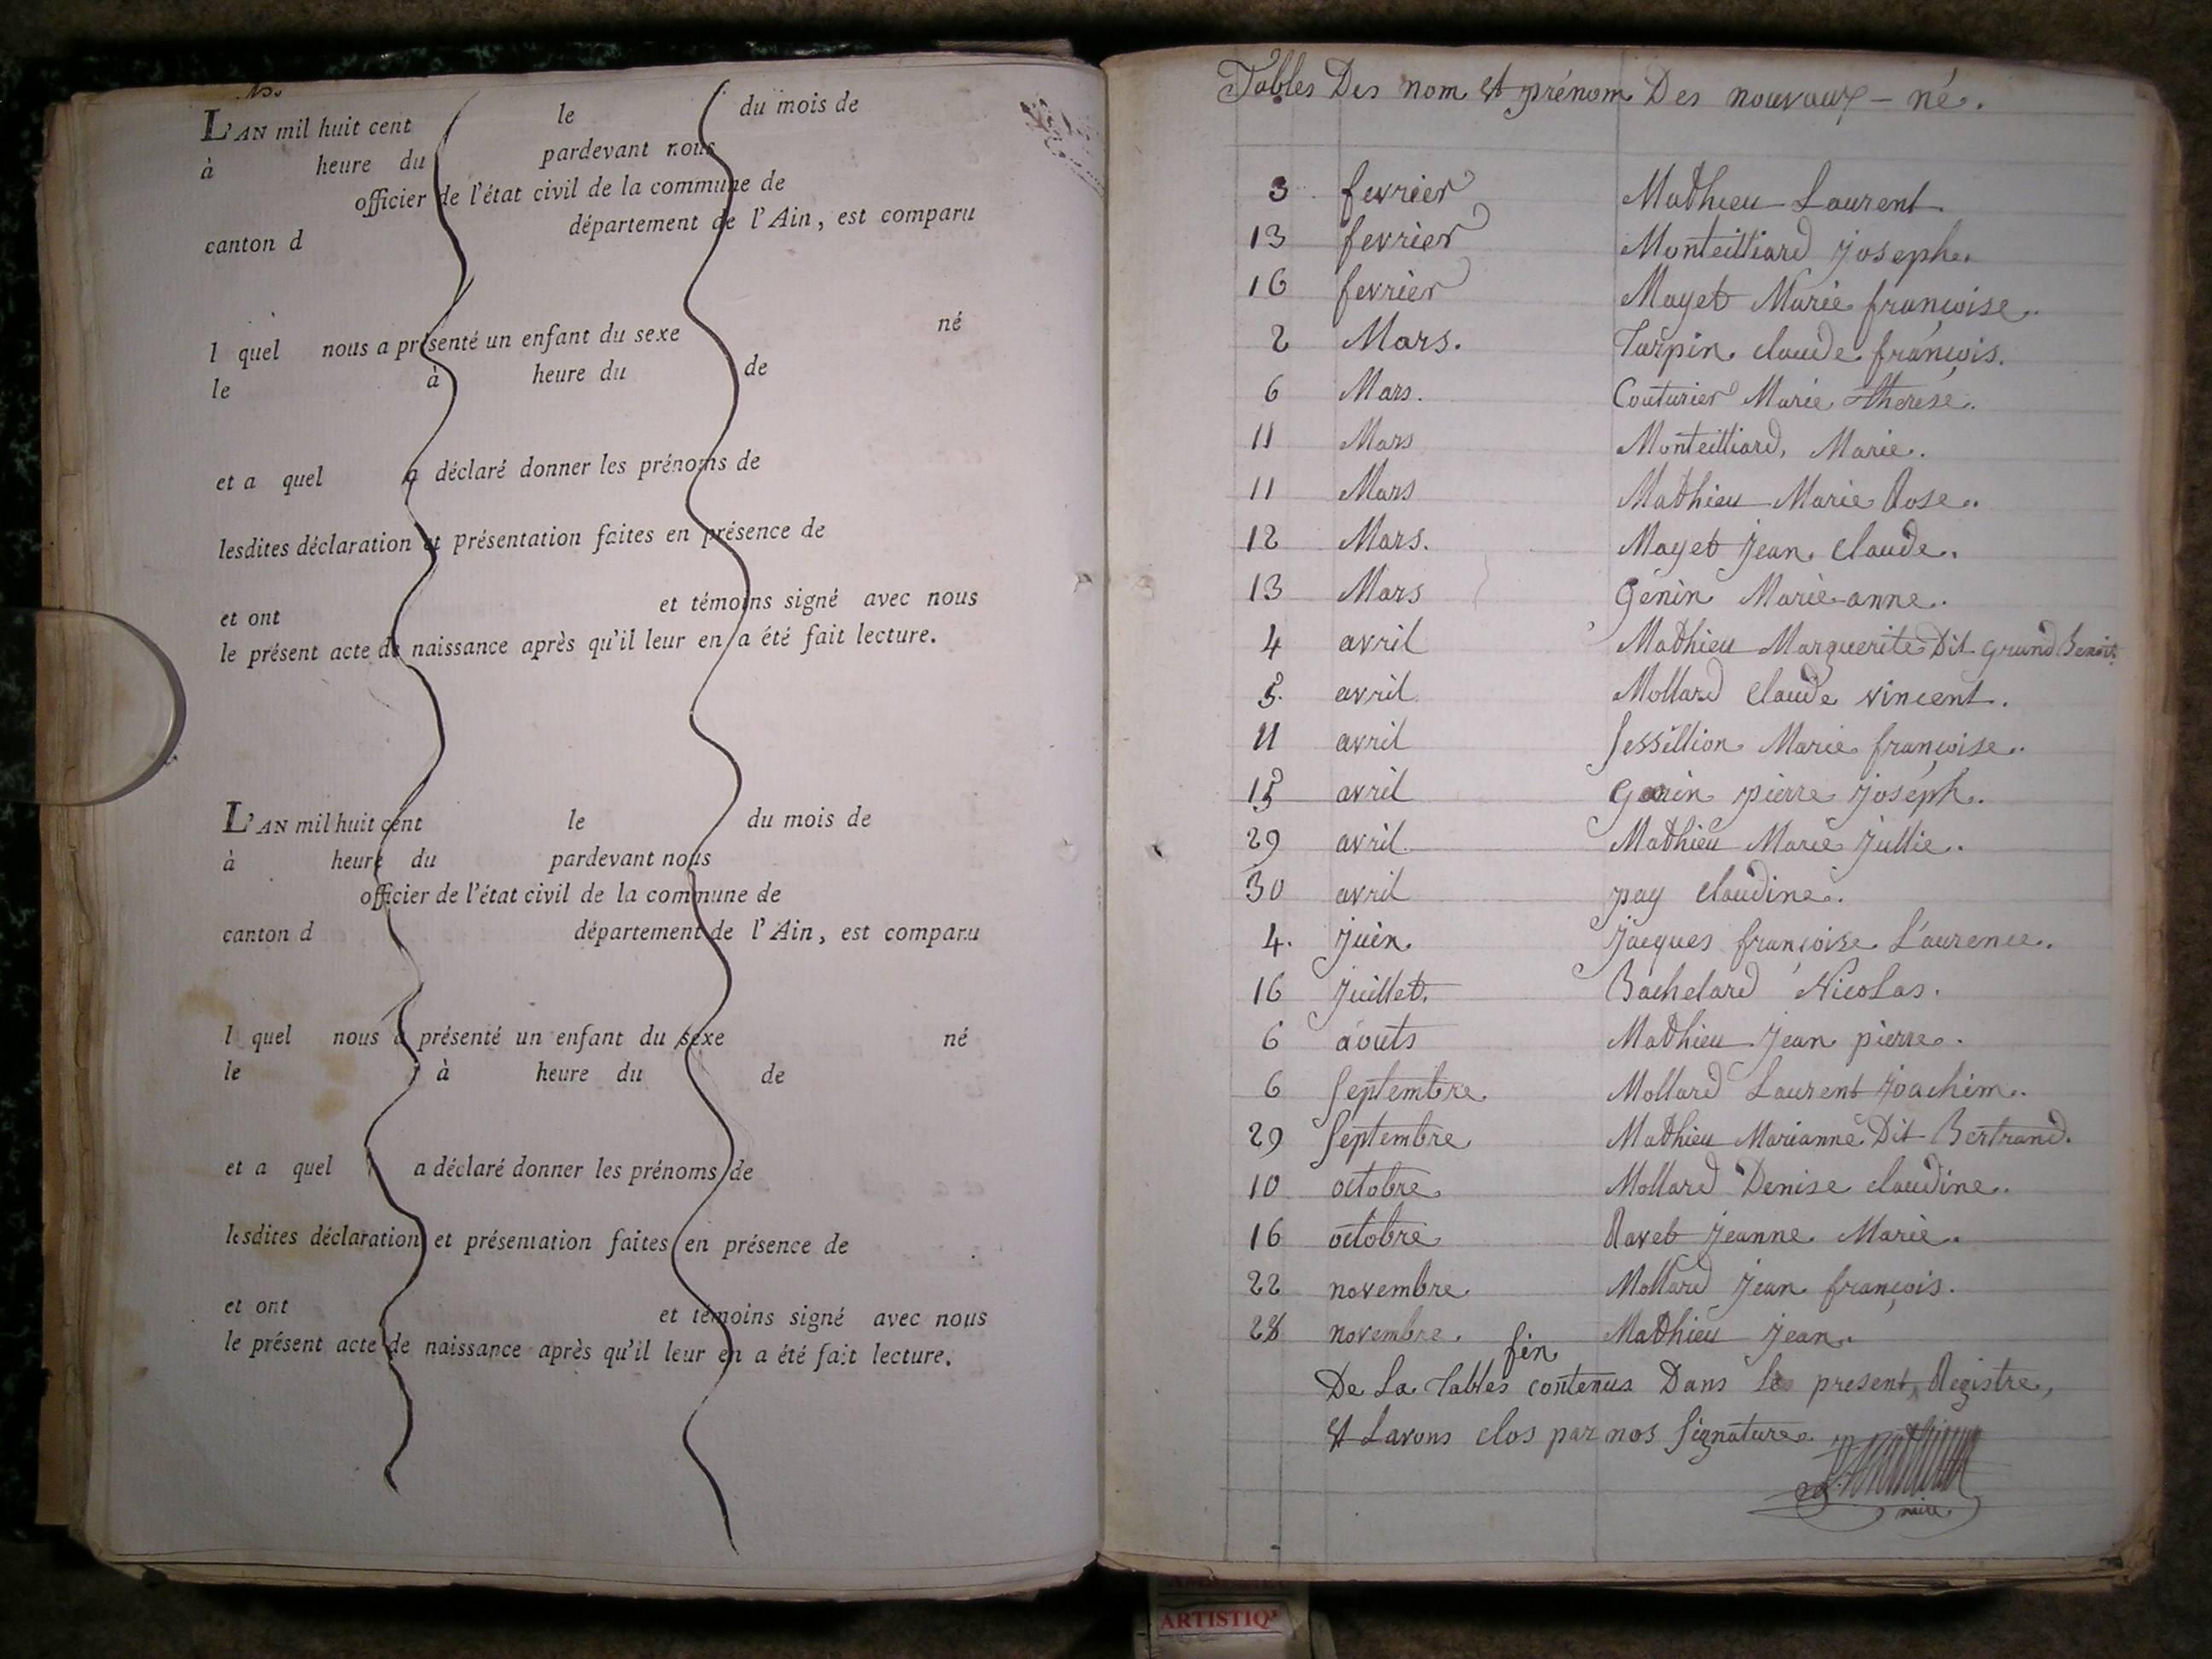 L'AN mil huit cent le du mois de
à heure du pardevant nous
officier de l'état civil de la commune de
canton d département de l'Ain, est comparu
l quel nous a présenté un enfant du sexe né
le à heure du de
et a quel a déclaré donner les prénoms de
lesdites déclaration et présentation faites en présence de
et ont et témoins signé avec nous
le présent acte de naissance après qu'il leur en a été fait lecture.
L'AN mil huit cent le du mois de
à heure du pardevant nous
officier de l'état civil de la commune de
canton d département de l'Ain, est comparu
l quel nous a présenté un enfant du sexe né
le à heure du de
et a quel a déclaré donner les prénoms de
lesdites déclaration et présentation faites en présence de
et ont et témoins signé avec nous
le présent acte de naissance après qu'il leur en a été fait lecture.
Tables Des nom et prénom Des nouvaux - né.
3 fevrier Mathieu Laurent.
13 fevrier Monteilliard joseph.
16 fevrier Mayet Marie françoise.
2 Mars. Tarpin claude françois.
6 Mars. Couturier Marie therese.
11 Mars Monteilliard, Marie.
11 Mars Mathieu Marie Rose.
12 Mars. Mayet jean claude.
13 Mars Genin Marie-anne.
4 avril Mathieu Marguerite Dit grand Benoit
5 avril Mollard Claude vincent.
11 avril Sessillion Marie françoise.
15 avril pierre joseph.
29 avril Mathieu Marie jullie.
30 avril pay Claudine.
4. juin jacques françoise Laurence.
16 juillet. Bachelard Nicolas.
6 aouts Mathieu jean pierre.
6 Septembre Mollard Laurent joachim.
29 Septembre Mathieu Marianne Dit Bertrand.
10 octobre Mollard Denise claudine.
16 octobre Ravet jeanne Marie.
22 novembre Mollard jean françois.
28 novembre. Mathieu jean.
fin
De La tables contenus Dans le present Registre,
et Lavons clos par nos Signature.
maire
ARTISTIQ